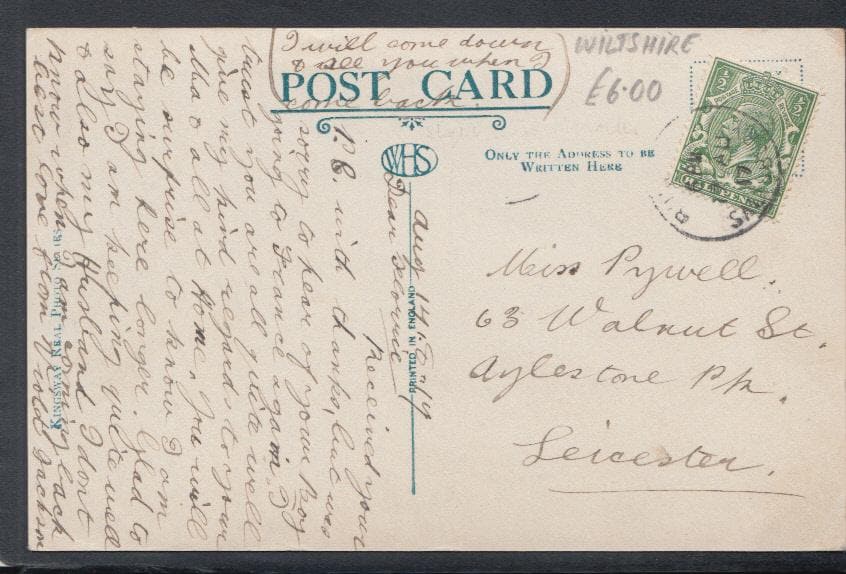 I will come down
& see you when I
come back.
POST CARD
WILTSHIRE
£6.00
WHS
ONLY THE ADDRESS TO BE
WRITTEN HERE
HALFPENNY
½
½
PRINTED IN ENGLAND
KINGSWAY REAL PHOTO SERIES
Miss Pywell.
63 Walnut St.
Aylestone Pk.
Leicester.
Aug 14
Dear Florrie
Received your
P.C with thanks, but was
sorry to hear of your Boy
going to France again. I
trust you are all quite well
give my kind regards to your
Ma & all at Home. You will
be surprise to know I am
staying here longer. Glad to
say I am keeping quite well
& also my Husband I don't
know when I am going back
best love from Jackson